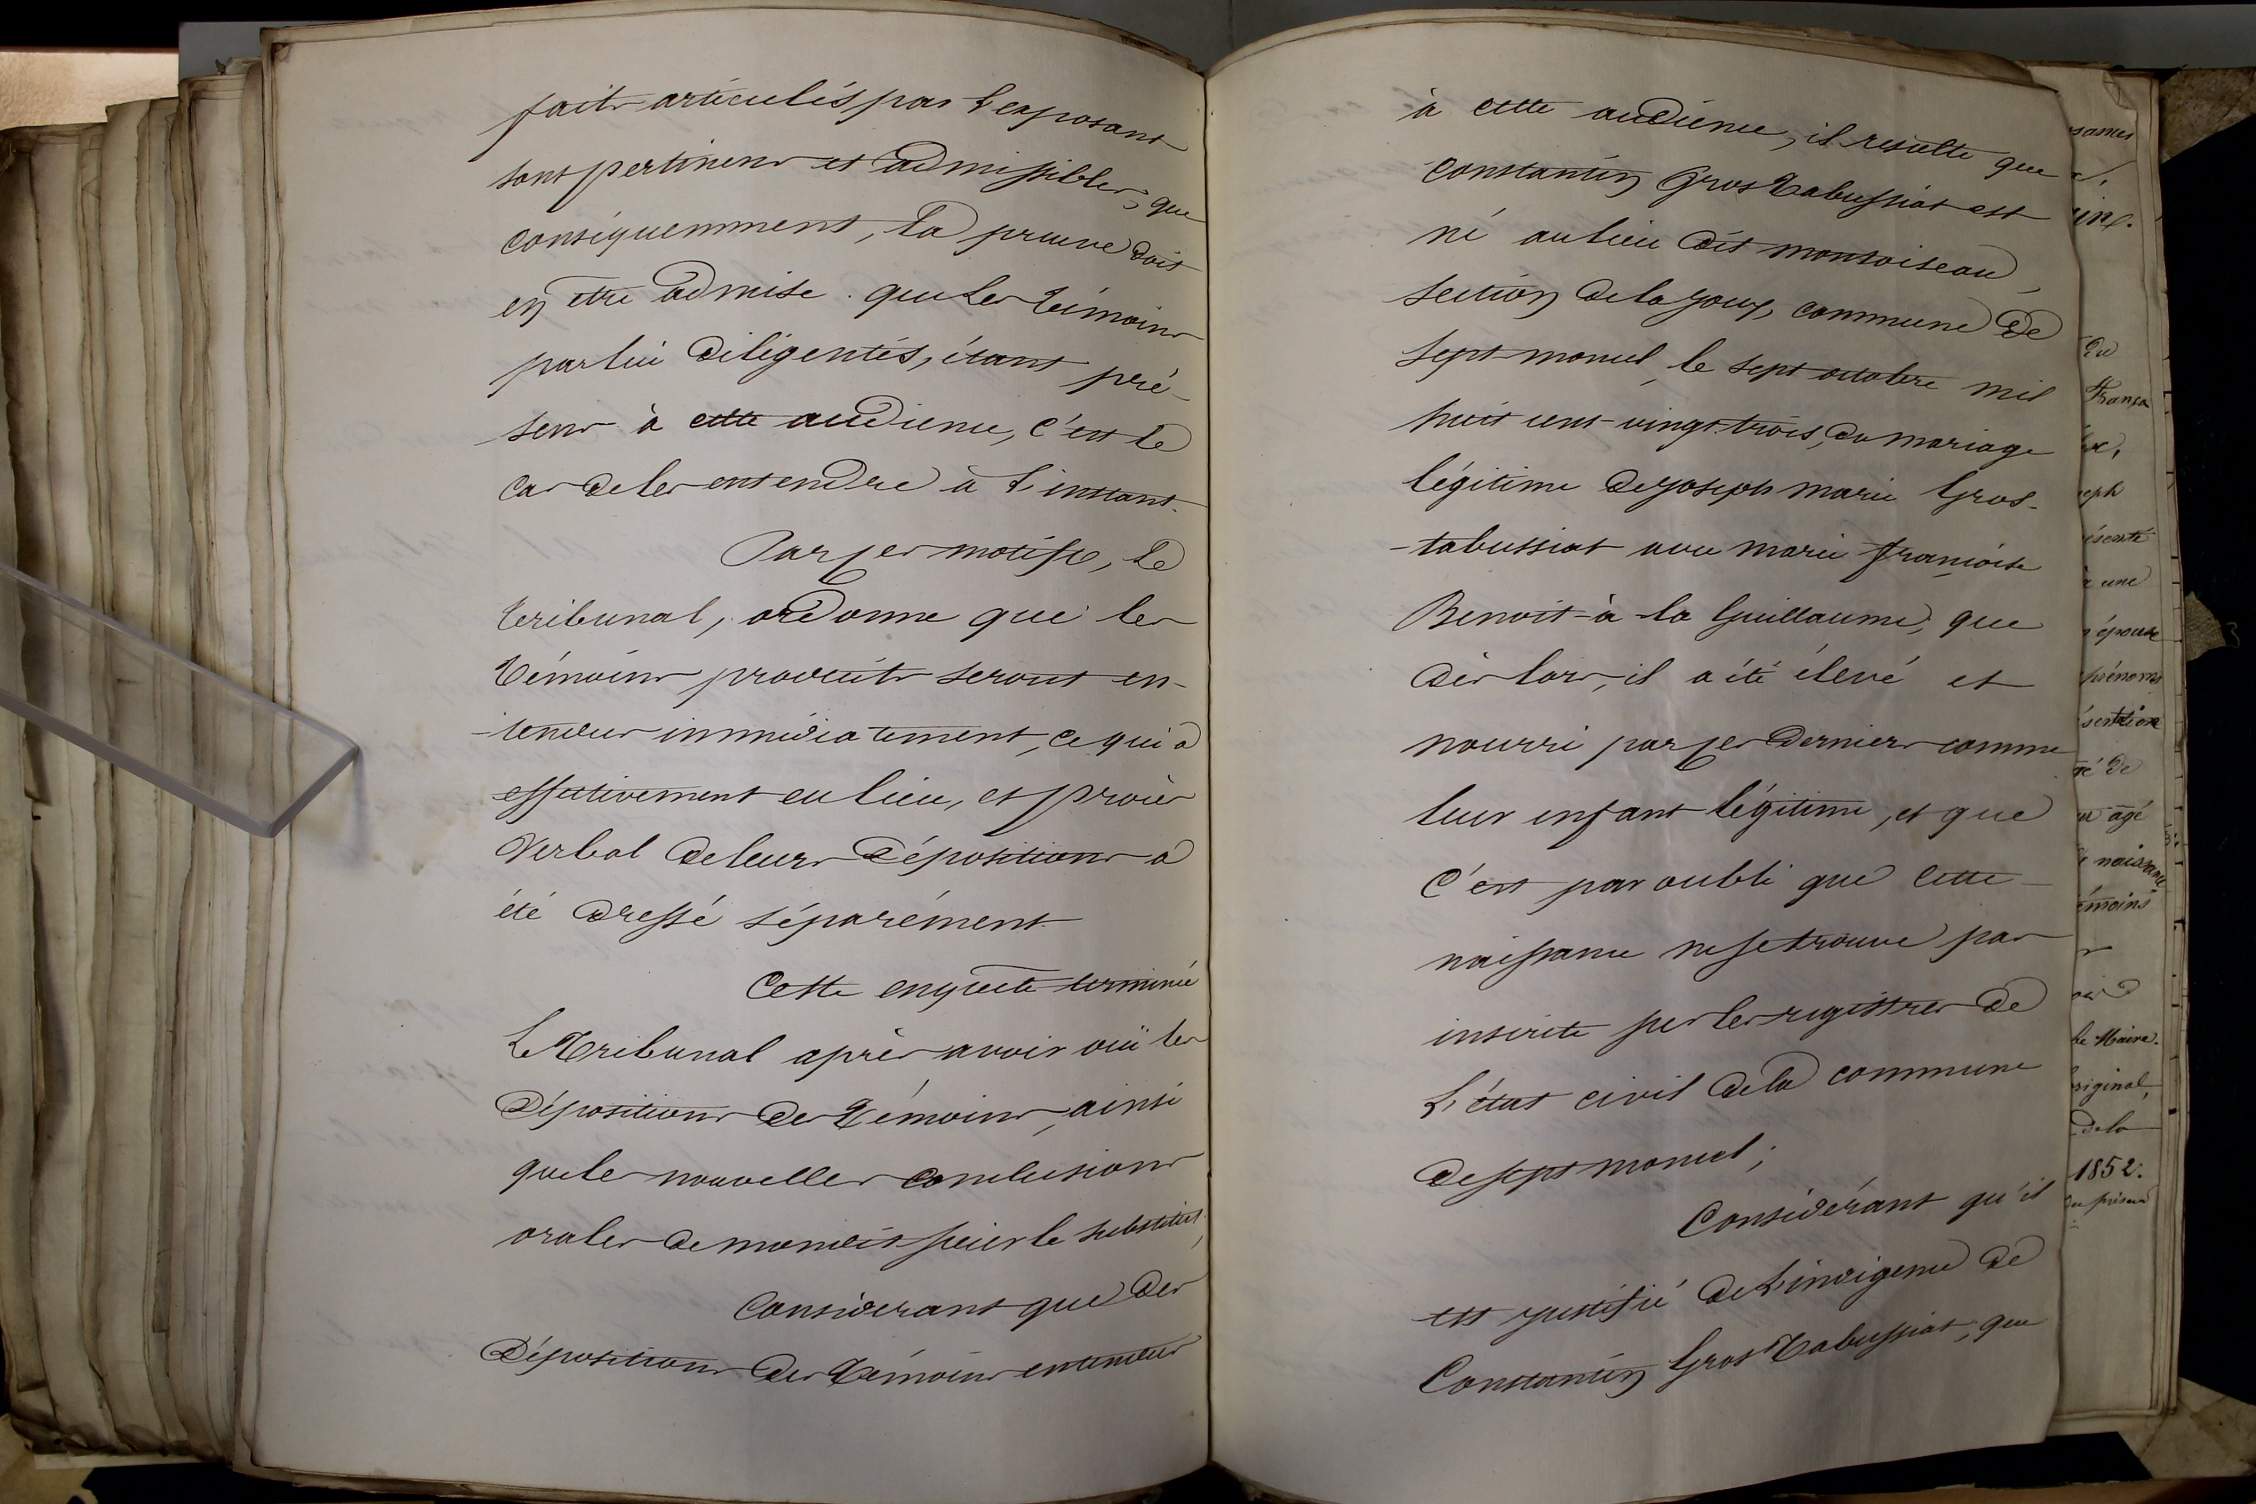 faits articulés par l'exposant
sont pertinens et admissibles, que
conséquemment, la preuve doit
en être admise. que les témoins
par lui diligentés, étant pré-
sens à cette audience, c'est le
cas de les entendre à l'instant.
Par ces motifs, le
tribunal, ordonne que les
témoins produits seront en-
-tendus immédiatement, ce qui a
effectivement eu lieu, et procès
verbal de leurs dépositions a
été dressé séparément.
Cette enquête terminée
Le tribunal après avoir ouï les
dépositions des témoins, ainsi
que les nouvelles conclusions
orales de mondit sieur le substitut,
Considérant que des
dépositions des témoins entendus
à cette audience, il resulte que
Constantin Gros Tabussiat est
né au lieu dit montoiseau,
section de la joux, commune de
Septmoncel, le sept octobre mil
huit cent vingt trois, du mariage
légitime de joseph marie Gros-
-tabussiat avec marie françoise
Benoit-à-la Guillaume, que
dès lors, il a été élevé et
nourri par ces derniers comme
leur enfant légitime, et que
c'est par oubli que cette
naissance ne se trouve pas
inscrite sur les registres de
L'état civil de la commune
de septmoncel;
Considérant qu'il
est justifié de L'indigence de
Constantin Gros Tabussiat, que
du
ésenté
une
épouse
prénoms
de
agé
naissance
émoins
le Maire.
original,
de la
1852.